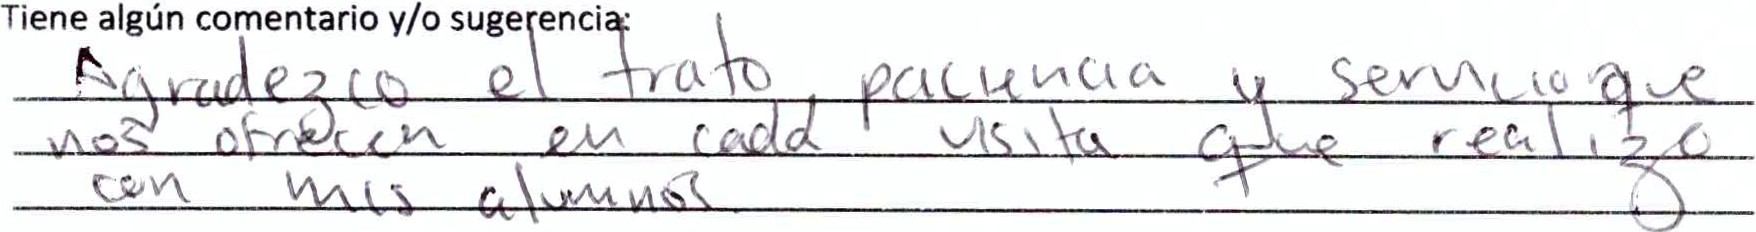 Tiene algún comentario y/o sugerencia:
Agradezco el trato, paciencia y servicio que
nos ofrecen en cada visita que realizo
con mis alumnos